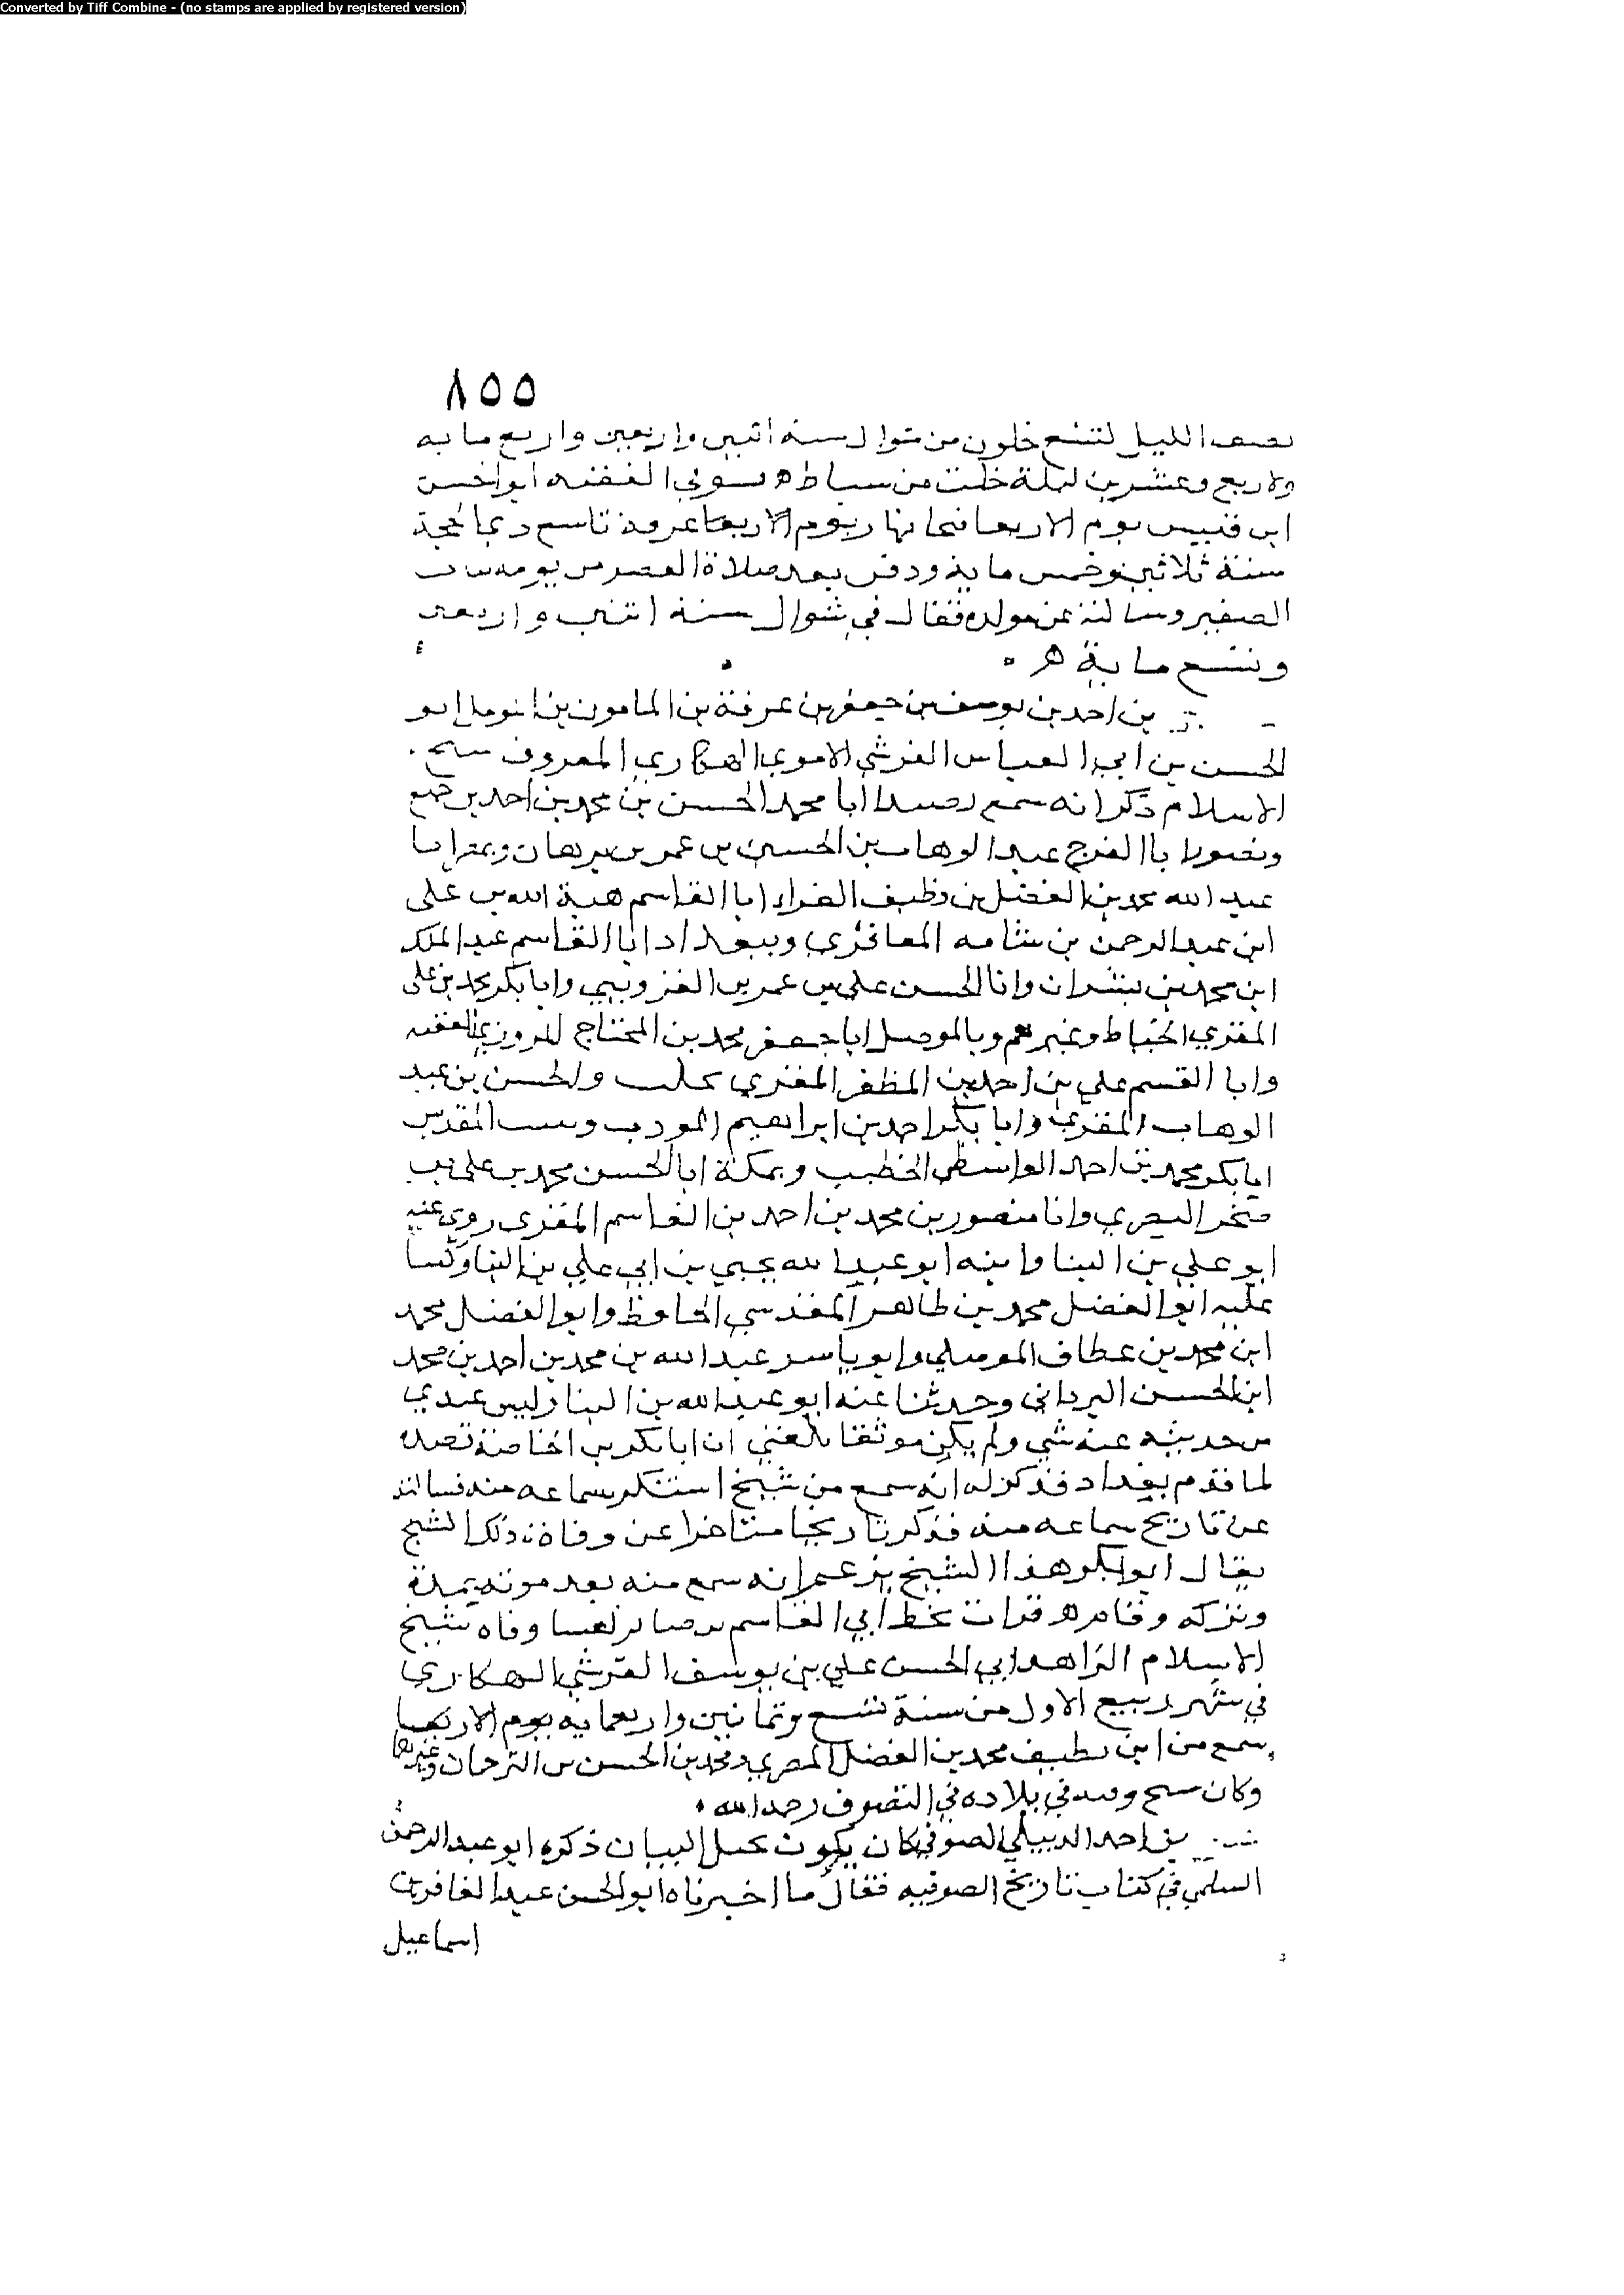 Converted by Tiff Combine - (no stamps are applied by registered version)
٨٥٥
نصف الليل لتسع خلون من شوال سنة اثنين واربعين واربع مايه
ولاربع وعشرين ليلة خلت من سباط ه توفي الفقيه ابو الحسن
ابن قبيس يوم الاربعا ربيوم الاربعا عرفة تاسع ذي الحجة
سنة ثلاثين وخمس ماية ودفن بعد صلاة العصر من يومه بباب
الصغير وسالته عن مولده فقال في شوال سنة اثنين واربعين
وتسع ماية ه
بن احمد بن يوسف بن جعفر بن عرفة بن المامون بن المومل ابو
الحسن بن ابي العباس القرشي الاموي الهكاري المعروف بشيخ
الاسلام ذكر انه سمع بصيدا ابا محمد الحسن بن محمد بن احمد بن جميع
وبصور ابا الفرج عبد الوهاب بن الحسين بن عمر بن برهان وبمصر ابا
عبد الله محمد بن الفضل بن نظيف الفراء ابا القاسم هبة الله بن علي
ابن عبد الرحمن بن شامه المعافري وببغداد ابا القاسم عبد الملك
ابن محمد بن بشران وابا الحسن علي بن عمر بن القزويني وابا بكر محمد بن علي
المقري الخياط وغيرهم وبالموصل ابا جعفر محمد بن المختاج المروزي الفقيه
وابا القسم علي بن احمد بن المظفر المقري بحلب والحسن بن عبد
الوهاب المقري وابا بكر احمد بن ابراهيم المودب وببيت المقدس
ابا بكر محمد بن احمد الواسطي الخطيب وبمكة ابا الحسن محمد بن علي بن
صخر البصري وابا منصور بن محمد بن احمد بن القاسم المقري روى عنه
ابو علي بن البنا وابنه ابو عبد الله يحيي بن ابي علي بن البنا وكتبا
عليه ابو الفضل محمد بن طاهر المقدسي الحافظ وابو الفضل محمد
ابن محمد بن عطاف الموصلي وابو ياسر عبد الله بن محمد بن احمد بن محمد
ابن الحسن البرداني وحدثنا عنه ابو عبد الله بن البنا وليس عندي
من حديثه عنه شي ولم يكن موثقا بلغني ان ابا بكر بن الخاضبة قصده
لما قدم بغداد فذكر له انه سمع من شيخ استنكر سماعه منه فسالته
عن تاريخ سماعه منه فذكر تاريخا متاخرا عن وفاة ذلك الشيخ
فقال ابو بكر هذا الشيخ يزعم انه سمع منه بعد موته بمدة
وتركه وقام ه قرات بخط ابي القاسم بن صابر وفاه شيخ
الاسلام الزاهد ابي الحسن علي بن يوسف القرشي الهكاري
في شهر ربيع الاول من سنة تسع وثمانين واربعمايه بيوم الاربعا
سمع من ابن نظيف محمد بن الفضل المصري ومحمد بن الحسن بن الترجان وغيرها
وكان شيخ وقته في بلاده في التصوف رحمه الله
بن احمد الديبلي الصوفي كان يكون بجبل اللبان ذكره ابو عبد الرحمن
السلمي في كتاب تاريخ الصوفيه فقال ما اخبرناه ابو الحسن عبد الغافر بن
اسماعيل